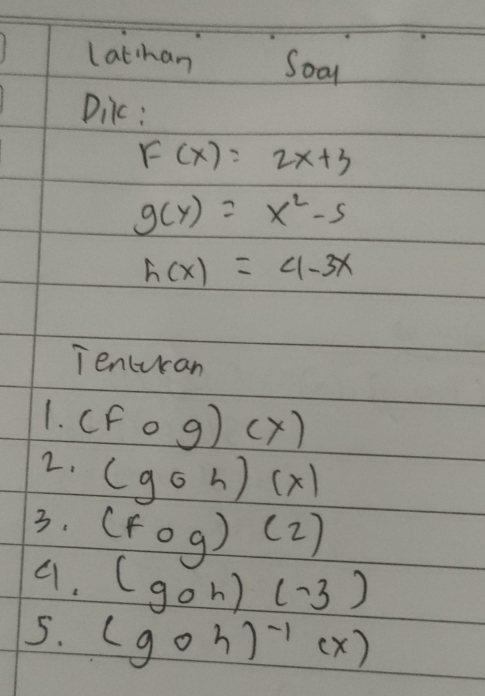 Latihan Soal
Dik:
F(x) = 2x+3
g(x) = x²-5
h(x) = 4-3x
Tentukan
1. (f o g) (x)
2. (g o h) (x)
3. (f o g) (2)
4. (g o h) (-3)
5. (g o h)⁻¹ (x)